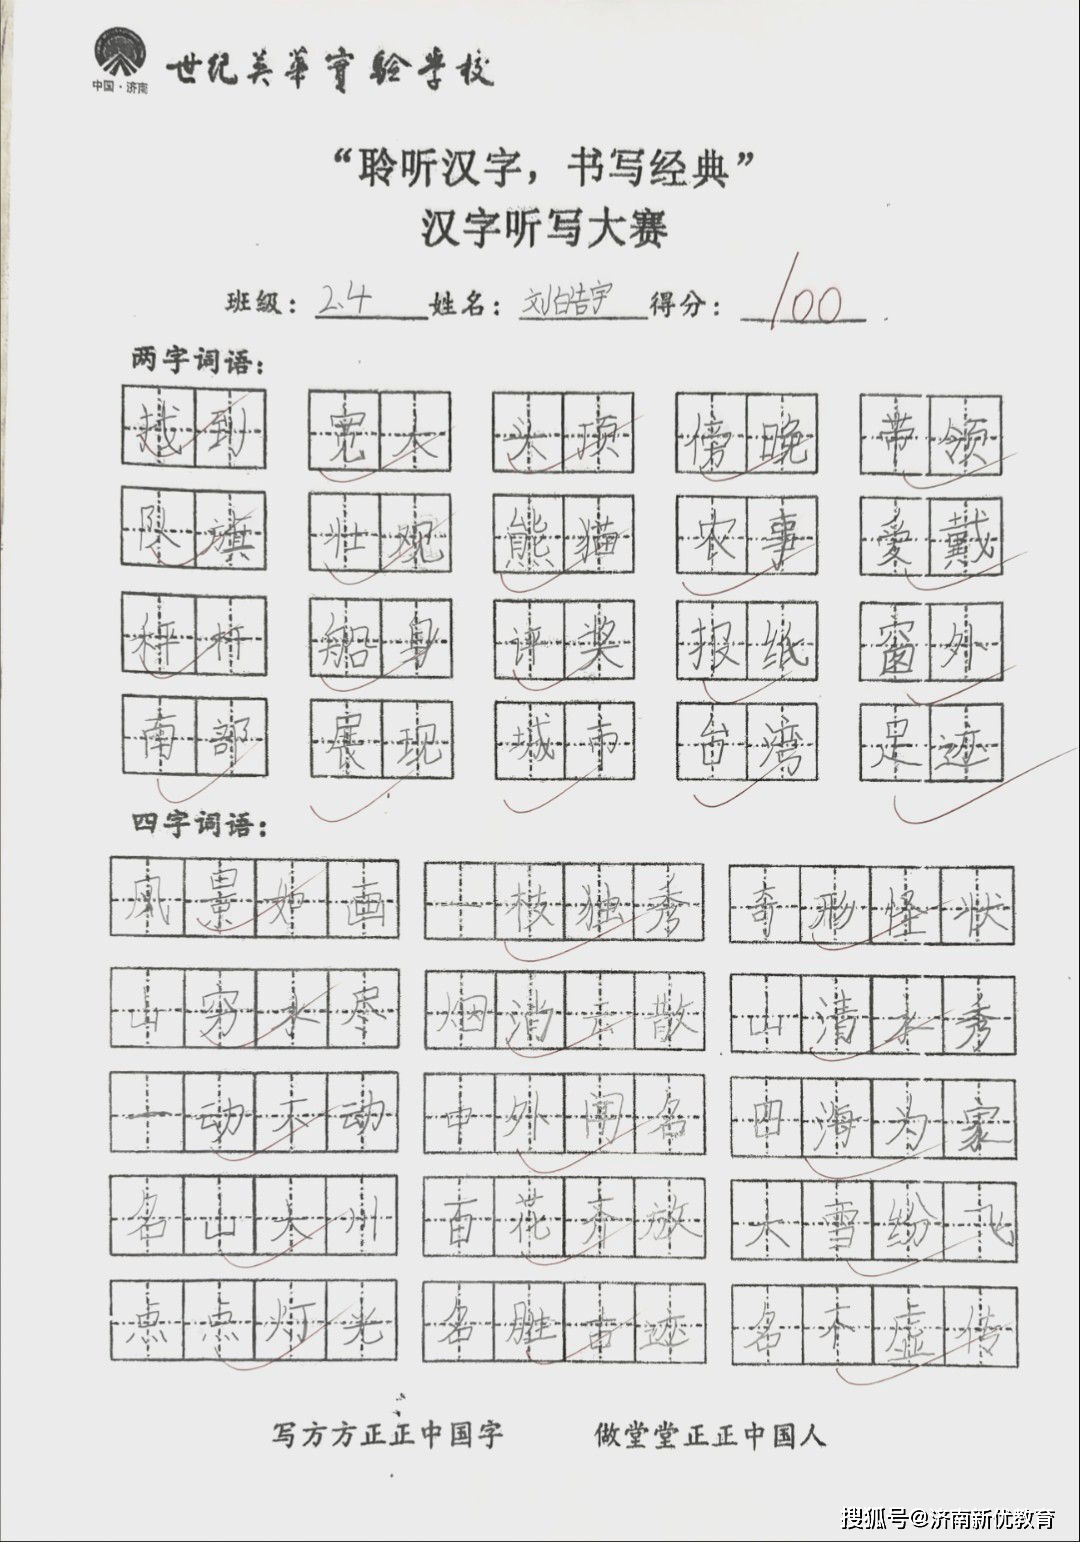 中国·济南
世纪美华实验学校
“聆听汉字，书写经典”
汉字听写大赛
班级：2.4 姓名：刘皓宇 得分：100
两字词语：
找到 宽大 头顶 傍晚 带领
队旗 壮观 熊猫 农事 爱戴
秤杆 船身 评奖 报纸 窗外
南部 展现 城市 台湾 足迹
四字词语：
风景如画 一枝独秀 奇形怪状
山穷水尽 烟消云散 山清水秀
一动不动 中外闻名 四海为家
名山大川 百花齐放 大雪纷飞
点点灯光 名胜古迹 名不虚传
写方方正正中国字 做堂堂正正中国人
搜狐号@济南新优教育